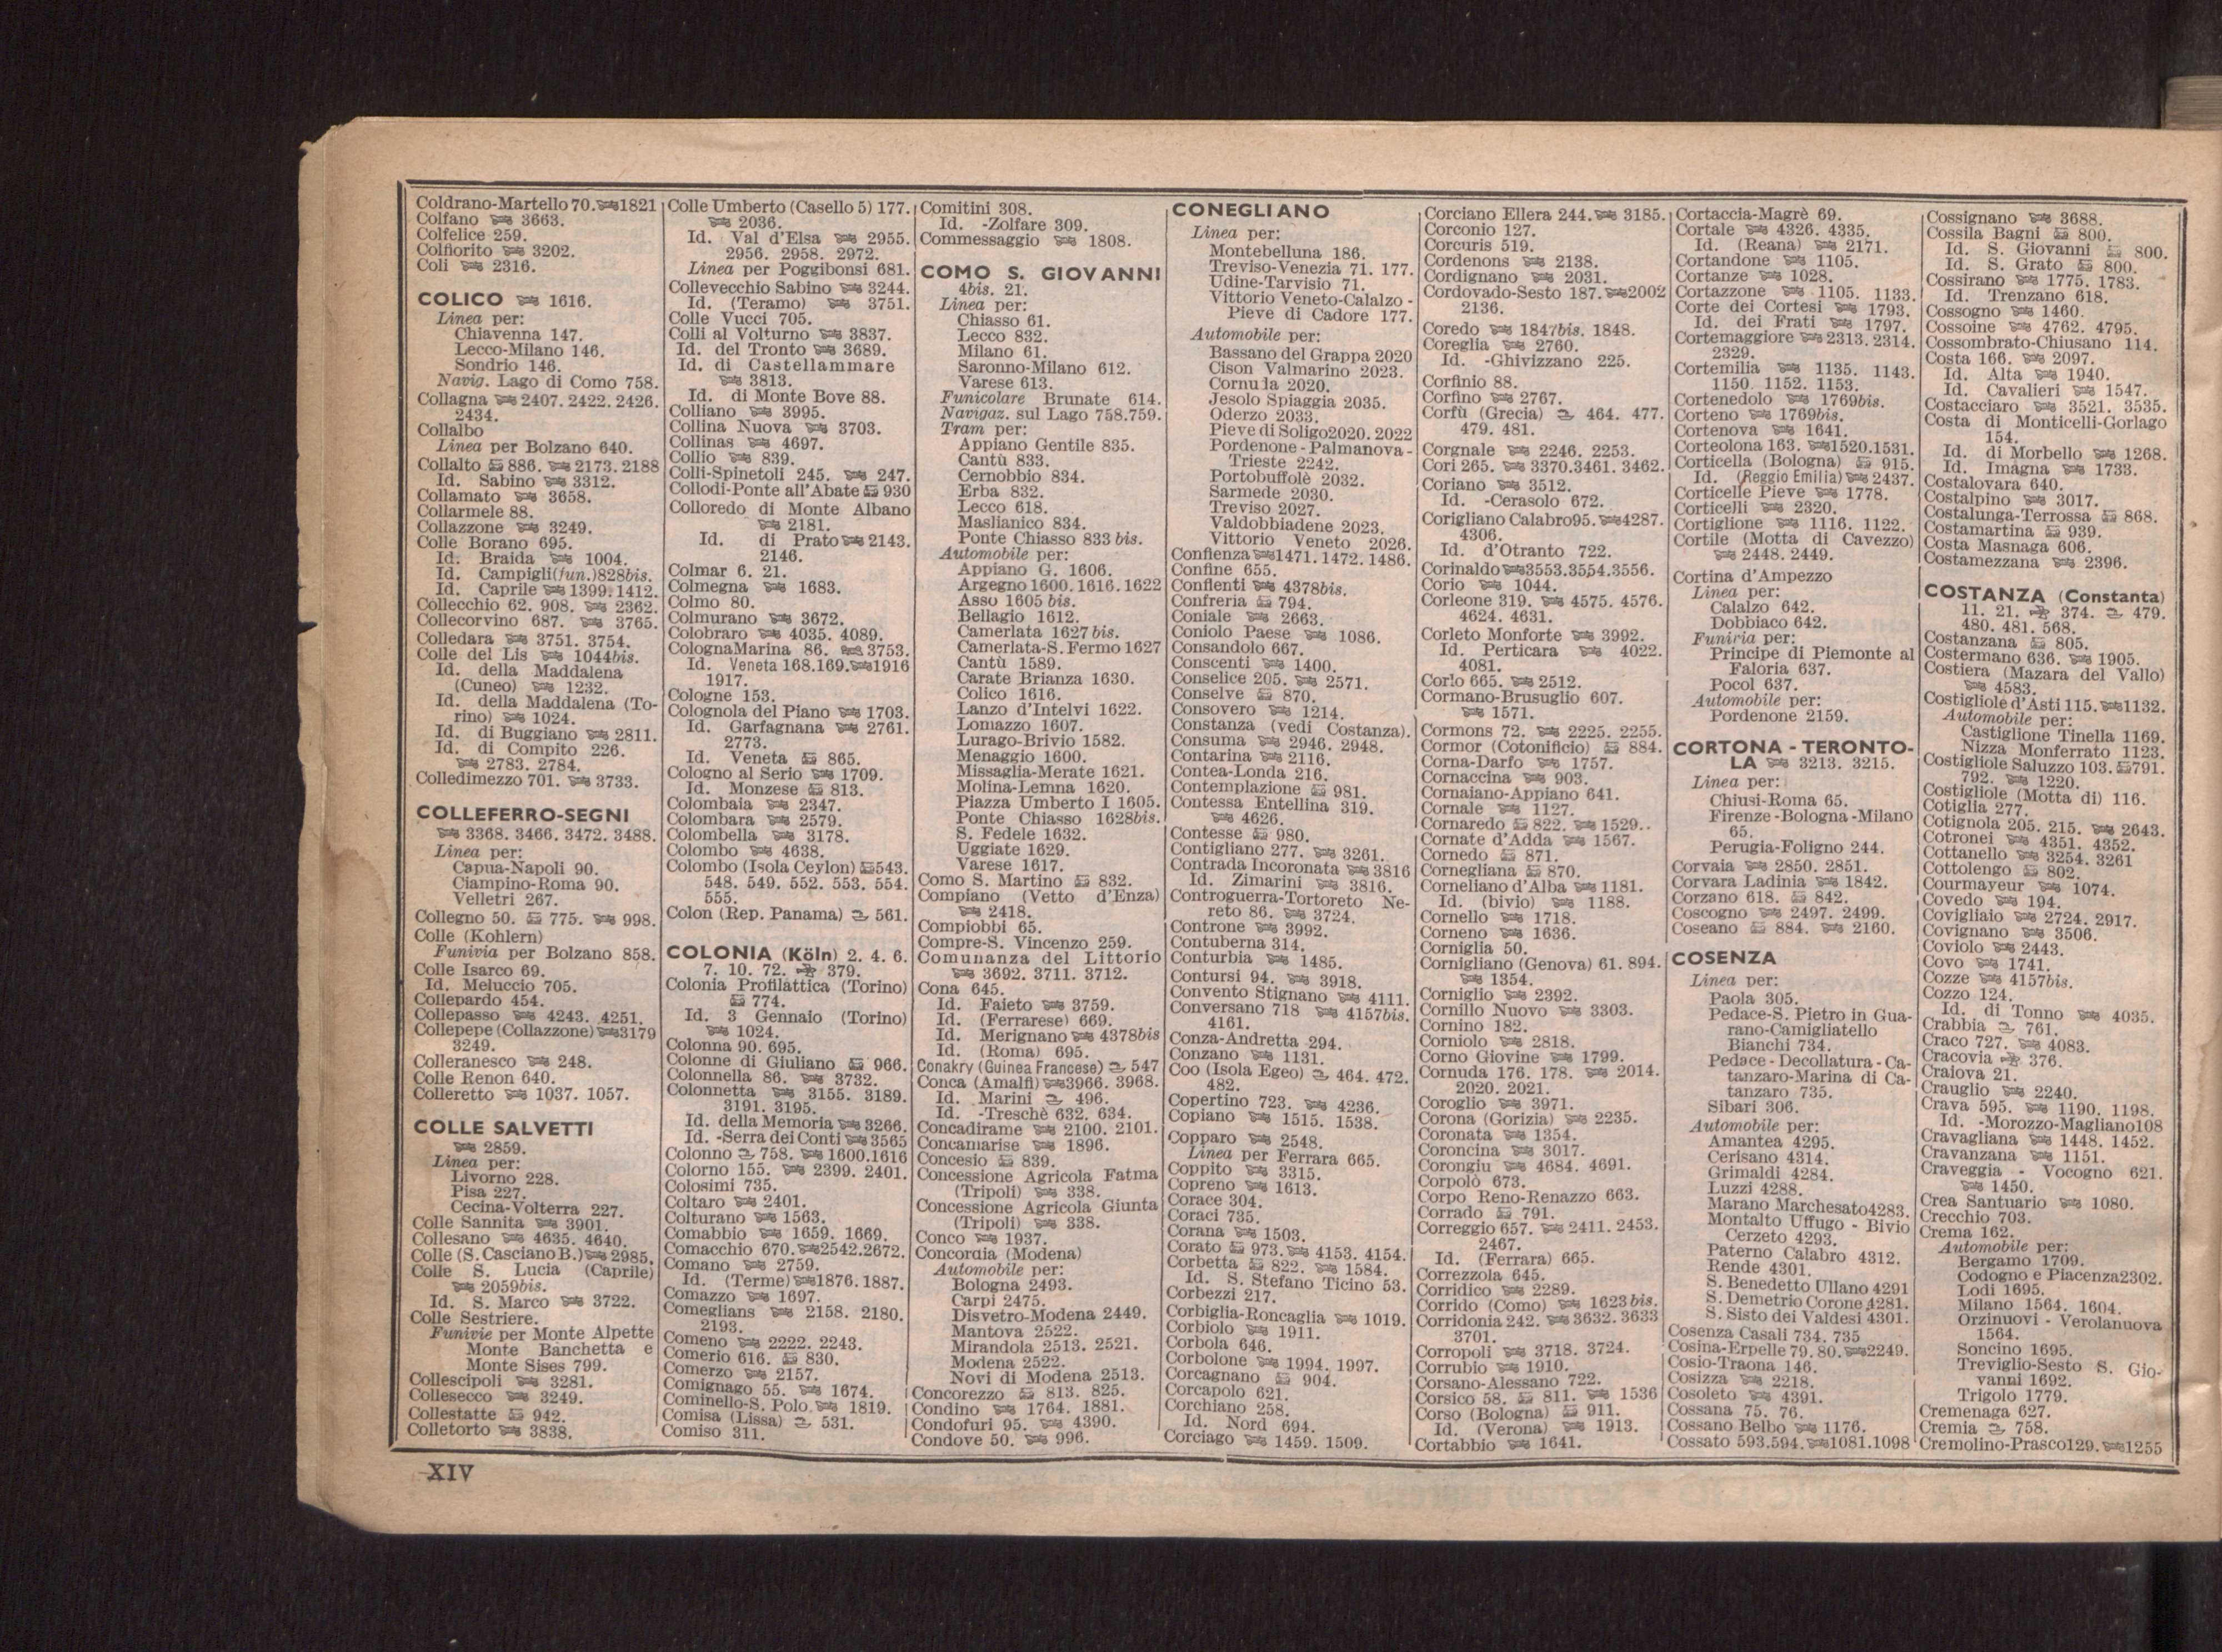 Coldrano-Martello 70. 1821
Colfano 3663.
Colfelice 259.
Colfiorito 3202.
Coli 2316.
COLICO 1616.
Linea per:
Chiavenna 147.
Lecco-Milano 146.
Sondrio 146.
Navig. Lago di Como 758.
Collagna 2407. 2422. 2426.
2434.
Collalbo
Linea per Bolzano 640.
Collalto 886. 2173. 2188
Id. Sabino 3312.
Collamato 3658.
Collarmele 88.
Collazzone 3249.
Colle Borano 695.
Id. Braida 1004.
Id. Campigli (fun.) 828bis.
Id. Caprile 1399. 1412.
Collecchio 62. 908. 2362.
Collecorvino 687. 3765.
Colledara 3751. 3754.
Colle del Lis 1044bis.
Id. della Maddalena
(Cuneo) 1232.
Id. della Maddalena (To-
rino) 1024.
Id. di Buggiano 2811.
Id. di Compito 226.
2783. 2784.
Colledimezzo 701. 3733.
COLLEFERRO-SEGNI
3368. 3466. 3472. 3488.
Linea per:
Capua-Napoli 90.
Ciampino-Roma 90.
Velletri 267.
Collegno 50. 775. 998.
Colle (Kohlern)
Funivia per Bolzano 858.
Colle Isarco 69.
Id. Meluccio 705.
Collepardo 454.
Collepasso 4243. 4251.
Collepepe (Collazzone) 3179
3249.
Colleranesco 248.
Colle Renon 640.
Colleretto 1037. 1057.
COLLE SALVETTI
2859.
Linea per:
Livorno 228.
Pisa 227.
Cecina-Volterra 227.
Colle Sannita 3901.
Collesano 4635. 4640.
Colle (S. Casciano B.) 2985.
Colle S. Lucia (Caprile)
2059bis.
Id. S. Marco 3722.
Colle Sestriere.
Funivie per Monte Alpette
Monte Banchetta e
Monte Sises 799.
Collescipoli 3281.
Collesecco 3249.
Collestatte 942.
Colletorto 3838.
Colle Umberto (Casello 5) 177.
2036.
Id. Val d'Elsa 2955.
2956. 2958. 2972.
Linea per Poggibonsi 681.
Collevecchio Sabino 3244.
Id. (Teramo) 3751.
Colle Vucci 705.
Colli al Volturno 3837.
Id. del Tronto 3689.
Id. di Castellammare
3813.
Id. di Monte Bove 88.
Colliano 3995.
Collina Nuova 3703.
Collinas 4697.
Collio 839.
Colli-Spinetoli 245. 247.
Collodi-Ponte all'Abate 930
Colloredo di Monte Albano
2181.
Id. di Prato 2143.
2146.
Colmar 6. 21.
Colmegna 1683.
Colmo 80.
Colmurano 3672.
Colobraro 4035. 4089.
Cologna Marina 86. 3753.
Id. Veneta 168.169. 1916
1917.
Cologne 153.
Colognola del Piano 1703.
Id. Garfagnana 2761.
2773.
Id. Veneta 865.
Cologno al Serio 1709.
Id. Monzese 813.
Colombaia 2347.
Colombara 2579.
Colombella 3178.
Colombo 4638.
Colombo (Isola Ceylon) 543.
548. 549. 552. 553. 554.
555.
Colon (Rep. Panama) 561.
COLONIA (Köln) 2. 4. 6.
7. 10. 72. 379.
Colonia Profilattica (Torino)
774.
Id. 3 Gennaio (Torino)
1024.
Colonna 90. 695.
Colonne di Giuliano 966.
Colonnella 86. 3732.
Colonnetta 3155. 3189.
3191. 3195.
Id. della Memoria 3266.
Id. -Serra dei Conti 3565
Colonno 758. 1600.1616
Colorno 155. 2399. 2401.
Colosimi 735.
Coltaro 2401.
Colturano 1563.
Comabbio 1659. 1669.
Comacchio 670. 2542.2672.
Comano 2759.
Id. (Terme) 1876. 1887.
Comazzo 1697.
Comeglians 2158. 2180.
2193.
Comeno 2222. 2243.
Comerio 616. 830.
Comerzo 2157.
Comignago 55. 1674.
Cominello-S. Polo 1819.
Comisa (Lissa) 531.
Comiso 311.
Comitini 308.
Id. -Zolfare 309.
Commessaggio 1808.
COMO S. GIOVANNI
4bis. 21.
Linea per:
Chiasso 61.
Lecco 832.
Milano 61.
Saronno-Milano 612.
Varese 613.
Funicolare Brunate 614.
Navigaz. sul Lago 758.759.
Tram per:
Appiano Gentile 835.
Cantù 833.
Cernobbio 834.
Erba 832.
Lecco 618.
Maslianico 834.
Ponte Chiasso 833 bis.
Automobile per:
Appiano G. 1606.
Argegno 1600. 1616. 1622
Asso 1605 bis.
Bellagio 1612.
Camerlata 1627 bis.
Camerlata-S. Fermo 1627
Cantù 1589.
Carate Brianza 1630.
Colico 1616.
Lanzo d'Intelvi 1622.
Lomazzo 1607.
Lurago-Brivio 1582.
Menaggio 1600.
Missaglia-Merate 1621.
Molina-Lemna 1620.
Piazza Umberto I 1605.
Ponte Chiasso 1628bis.
S. Fedele 1632.
Uggiate 1629.
Varese 1617.
Como S. Martino 832.
Compiano (Vetto d'Enza)
2418.
Compiobbi 65.
Compre-S. Vincenzo 259.
Comunanza del Littorio
3692. 3711. 3712.
Cona 645.
Id. Faieto 3759.
Id. (Ferrarese) 669.
Id. Merignano 4378bis
Id. (Roma) 695.
Conakry (Guinea Francese) 547
Conca (Amalfi) 3966. 3968.
Id. Marini 496.
Id. -Treschè 632. 634.
Concadirame 2100. 2101.
Concamarise 1896.
Concesio 839.
Concessione Agricola Fatma
(Tripoli) 338.
Concessione Agricola Giunta
(Tripoli) 338.
Conco 1937.
Concordia (Modena)
Automobile per:
Bologna 2493.
Carpi 2475.
Disvetro-Modena 2449.
Mantova 2522.
Mirandola 2513. 2521.
Modena 2522.
Novi di Modena 2513.
Concorezzo 813. 825.
Condino 1764. 1881.
Condofuri 95. 4390.
Condove 50. 996.
CONEGLIANO
Linea per:
Montebelluna 186.
Treviso-Venezia 71. 177.
Udine-Tarvisio 71.
Vittorio Veneto-Calalzo-
Pieve di Cadore 177.
Automobile per:
Bassano del Grappa 2020
Cison Valmarino 2023.
Cornuda 2020.
Jesolo Spiaggia 2035.
Oderzo 2033.
Pieve di Soligo 2020. 2022
Pordenone-Palmanova-
Trieste 2242.
Portobuffolè 2032.
Sarmede 2030.
Treviso 2027.
Valdobbiadene 2023.
Vittorio Veneto 2026.
Confienza 1471. 1472. 1486.
Confine 655.
Conflenti 4378bis.
Confreria 794.
Coniale 2663.
Coniolo Paese 1086.
Consandolo 667.
Conscenti 1400.
Conselice 205. 2571.
Conselve 870.
Consovero 1214.
Constanza (vedi Costanza).
Consuma 2946. 2948.
Contarina 2116.
Contea-Londa 216.
Contemplazione 981.
Contessa Entellina 319.
4626.
Contesse 980.
Contigliano 277. 3261.
Contrada Incoronata 3816
Id. Zimarini 3816.
Controguerra-Tortoreto Ne-
reto 86. 3724.
Controne 3992.
Contuberna 314.
Conturbia 1485.
Contursi 94. 3918.
Convento Stignano 4111.
Conversano 718 4157bis.
4161.
Conza-Andretta 294.
Conzano 1131.
Coo (Isola Egeo) 464. 472.
482.
Copertino 723. 4236.
Copiano 1515. 1538.
Copparo 2548.
Linea per Ferrara 665.
Coppito 3315.
Copreno 1613.
Corace 304.
Coraci 735.
Corana 1503.
Corato 973. 4153. 4154.
Corbetta 822. 1584.
Id. S. Stefano Ticino 53.
Corbezzi 217.
Corbiglia-Roncaglia 1019.
Corbiolo 1911.
Corbola 646.
Corbolone 1994. 1997.
Corcagnano 904.
Corcapolo 621.
Corchiano 258.
Id. Nord 694.
Corciago 1459. 1509.
Corciano Ellera 244. 3185.
Corconio 127.
Corcuris 519.
Cordenons 2138.
Cordignano 2031.
Cordovado-Sesto 187. 2002
2136.
Coredo 1847bis. 1848.
Coreglia 2760.
Id. -Ghivizzano 225.
Corfinio 88.
Corfino 2767.
Corfù (Grecia) 464. 477.
479. 481.
Corgnale 2246. 2253.
Cori 265. 3370.3461. 3462.
Coriano 3512.
Id. -Cerasolo 672.
Corigliano Calabro 95. 4287.
4306.
Id. d'Otranto 722.
Corinaldo 3553.3554.3556.
Corio 1044.
Corleone 319. 4575. 4576.
4624. 4631.
Corleto Monforte 3992.
Id. Perticara 4022.
4081.
Corlo 665. 2512.
Cormano-Brusuglio 607.
1571.
Cormons 72. 2225. 2255.
Cormor (Cotonificio) 884.
Corna-Darfo 1757.
Cornaccina 903.
Cornaiano-Appiano 641.
Cornale 1127.
Cornaredo 822. 1529.
Cornate d'Adda 1567.
Cornedo 871.
Cornegliana 870.
Corneliano d'Alba 1181.
Id. (bivio) 1188.
Cornello 1718.
Corneno 1636.
Corniglia 50.
Cornigliano (Genova) 61. 894.
1354.
Corniglio 2392.
Cornillo Nuovo 3303.
Cornino 182.
Corniolo 2818.
Corno Giovine 1799.
Cornuda 176. 178. 2014.
2020. 2021.
Coroglio 3971.
Corona (Gorizia) 2235.
Coronata 1354.
Coroncina 3017.
Corongiu 4684. 4691.
Corpolò 673.
Corpo Reno-Renazzo 663.
Corrado 791.
Correggio 657. 2411. 2453.
2467.
Id. (Ferrara) 665.
Correzzola 645.
Corridico 2289.
Corrido (Como) 1623bis.
Corridonia 242. 3632. 3633
3701.
Corropoli 3718. 3724.
Corrubio 1910.
Corsano-Alessano 722.
Corsico 58. 811. 1536
Corso (Bologna) 911.
Id. (Verona) 1913.
Cortabbio 1641.
Cortaccia-Magrè 69.
Cortale 4326. 4335.
Id. (Reana) 2171.
Cortandone 1105.
Cortanze 1028.
Cortazzone 1105. 1133.
Corte dei Cortesi 1793.
Id. dei Frati 1797.
Cortemaggiore 2313. 2314.
2329.
Cortemilia 1135. 1143.
1150. 1152. 1153.
Cortenedolo 1769bis.
Corteno 1769bis.
Cortenova 1641.
Corteolona 163. 1520.1531.
Corticella (Bologna) 915.
Id. (Reggio Emilia) 2437.
Corticelle Pieve 1778.
Corticelli 2320.
Cortiglione 1116. 1122.
Cortile (Motta di Cavezzo)
2448. 2449.
Cortina d'Ampezzo
Linea per:
Calalzo 642.
Dobbiaco 642.
Funivia per:
Principe di Piemonte al
Faloria 637.
Pocol 637.
Automobile per:
Pordenone 2159.
CORTONA - TERONTO-
LA 3213. 3215.
Linea per:
Chiusi-Roma 65.
Firenze-Bologna-Milano
65.
Perugia-Foligno 244.
Corvaia 2850. 2851.
Corvara Ladinia 1842.
Corzano 618. 842.
Coscogno 2497. 2499.
Coseano 884. 2160.
COSENZA
Linea per:
Paola 305.
Pedace-S. Pietro in Gua-
rano-Camigliatello
Bianchi 734.
Pedace-Decollatura-Ca-
tanzaro-Marina di Ca-
tanzaro 735.
Sibari 306.
Automobile per:
Amantea 4295.
Cerisano 4314.
Grimaldi 4284.
Luzzi 4288.
Marano Marchesato 4283.
Montalto Uffugo - Bivio
Cerzeto 4293.
Paterno Calabro 4312.
Rende 4301.
S. Benedetto Ullano 4291
S. Demetrio Corone 4281.
S. Sisto dei Valdesi 4301.
Cosenza Casali 734. 735
Cosina-Erpelle 79. 80. 2249.
Cosio-Traona 146.
Cosizza 2218.
Cosoleto 4391.
Cossana 75. 76.
Cossano Belbo 1176.
Cossato 593.594. 1081.1098
Cossignano 3688.
Cossila Bagni 800.
Id. S. Giovanni 800.
Id. S. Grato 800.
Cossirano 1775. 1783.
Id. Trenzano 618.
Cossogno 1460.
Cossoine 4762. 4795.
Cossombrato-Chiusano 114.
Costa 166. 2097.
Id. Alta 1940.
Id. Cavalieri 1547.
Costacciaro 3521. 3535.
Costa di Monticelli-Gorlago
154.
Id. di Morbello 1268.
Id. Imagna 1733.
Costalovara 640.
Costalpino 3017.
Costalunga-Terrossa 868.
Costamartina 939.
Costa Masnaga 606.
Costamezzana 2396.
COSTANZA (Constanta)
11. 21. 374. 479.
480. 481. 568.
Costanzana 805.
Costermano 636. 1905.
Costiera (Mazara del Vallo)
4583.
Costigliole d'Asti 115. 1132.
Automobile per:
Castiglione Tinella 1169.
Nizza Monferrato 1123.
Costigliole Saluzzo 103. 791.
792. 1220.
Costigliole (Motta di) 116.
Cotiglia 277.
Cotignola 205. 215. 2643.
Cotronei 4351. 4352.
Cottanello 3254. 3261
Cottolengo 802.
Courmayeur 1074.
Covedo 194.
Covigliaio 2724. 2917.
Covignano 3506.
Coviolo 2443.
Covo 1741.
Cozze 4157bis.
Cozzo 124.
Id. di Tonno 4035.
Crabbia 761.
Craco 727. 4083.
Cracovia 376.
Craiova 21.
Crauglio 2240.
Crava 595. 1190. 1198.
Id. -Morozzo-Magliano 108
Cravagliana 1448. 1452.
Cravanzana 1151.
Craveggia - Vocogno 621.
1450.
Crea Santuario 1080.
Crecchio 703.
Crema 162.
Automobile per:
Bergamo 1709.
Codogno e Piacenza 2302.
Lodi 1695.
Milano 1564. 1604.
Orzinuovi - Verolanuova
1564.
Soncino 1695.
Treviglio-Sesto S. Gio-
vanni 1692.
Trigolo 1779.
Cremenaga 627.
Cremia 758.
Cremolino-Prasco 129. 1255
XIV